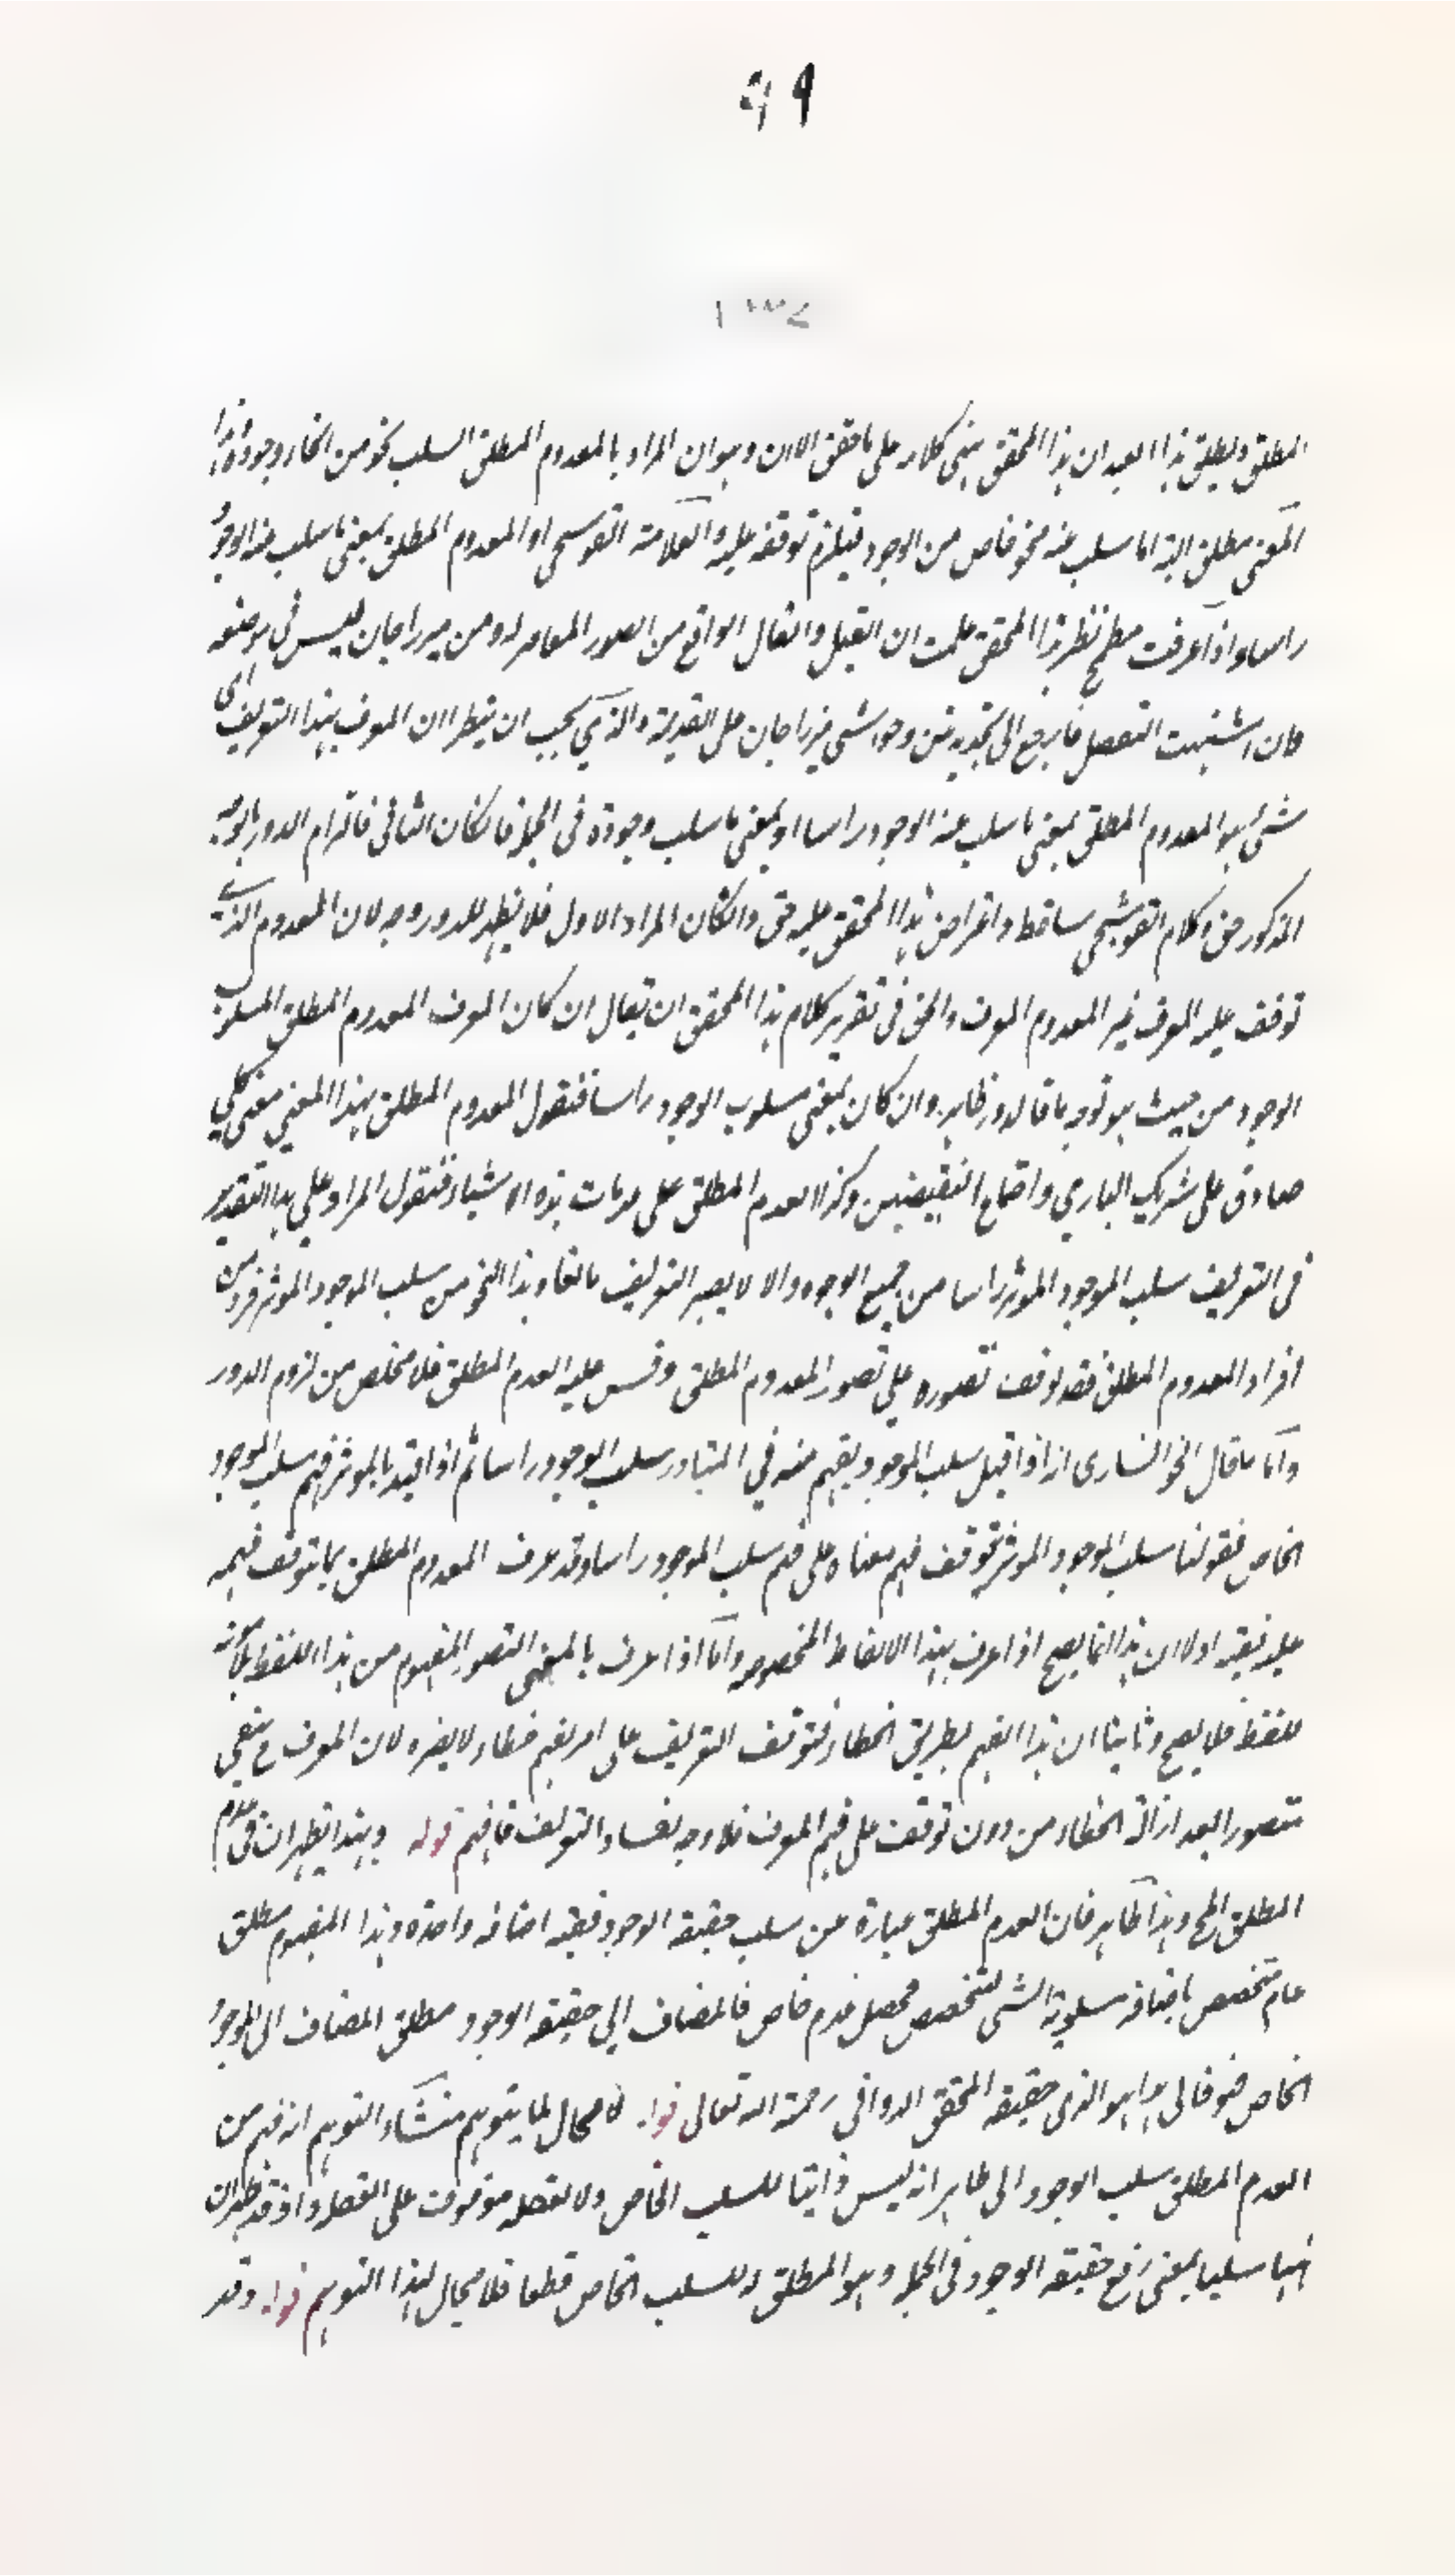 ٩٩
١٣٧
المطلق ويطلق هذا العبد ان هذا المحقق بنى كلامه على ما حقق الان وهو ان المراد بالمعدوم المطلق السلب نحو من انحاء وجوده وهذا
المعنى مطلق البتة اما سلب عنه نحو خاص من الوجود فيلزم توقفه عليه والعلامة القوشجى او المعدوم المطلق بمعنى ما سلب عنه الوجود
راسا واذا عرفت مطمح نظر هذا المحقق علمت ان القيل والقال الواقع من الصدر المعاصر له ومن ميرزا جان ليس فى موضعه
فان اشتهيت التفصل فارجع الى تجديدتين وحواشى ميرزا جان على القديمة والذى يجب ان ينظر ان المعرف بهذا التعريف اى
شئ هو المعدوم المطلق بمعنى ما سلب عنه الوجود راسا او بمعنى ما سلب وجوده فى الجملة فان كان الثانى فالتزام الدور بالوجه
المذكور حق وكلام القوشجى ساقط واعراض هذا المحقق عليه حق وان كان المراد الاول فلا يظهر للدور وجه لان المعدوم الذى
توقف عليه المعرف غير المعدوم المعرف والحق فى تقرير كلام هذا المحقق ان يقال ان كان المعرف المعدوم المطلق المسلوب
الوجود من حيث هو توجه ما قاله وظاهر وان كان بمعنى مسلوب الوجود راسا فنقول المعدوم المطلق بهذا المعنى معنى كلى
صادق على شريك البارى واجتماع النقيضين وكذا العدم المطلق على عدمات هذه الاشياء فنقول المراد على هذا التقدير
فى التعريف سلب الموجود المؤثر راسا من جميع الوجوه والا لا يصير التعريف مانعا وهذا النحو من سلب الموجود المؤثر فرد من
افراد المعدوم المطلق فقد توقف تصوره على تصور المعدوم المطلق وقس عليه العدم المطلق فلا مخلص من لزوم الدور
واما ما قال الخوانسارى انه اذا قيل سلب الموجود يفهم منه فى المتبادر سلب الوجود راسا ثم اذا قيد بالمؤثر فهم سلب الموجود
الخاص فقولنا سلب الموجود المؤثر توقف فهم معناه على فهم سلب الموجود راسا وقد عرف المعدوم المطلق بما يتوقف فهمه
عليه ففيه اولا ان هذا انما يصح اذا عرف بهذا الالفاظ المخصوصه واما اذا عرف بالمعنى المتصور المفهوم من هذا اللفظ بمكانه
للفظ فلا يصح وثانيا ان هذا الفهم بطريق الخطاء فتوقف التعريف على امر يفهم خطاء لا يضره لان المعرف ح ينبغى
تتصور بعد ازالة الخطاء من دون توقف على فهم المعرف فلا وجه لفساد التعريف فافهم قوله وبهذا يظهر ان فى العدم
المطلق الخ وهذا ظاهر فان العدم المطلق عبارة عن سلب حقيقة الوجود ففيه اضافه واحدة وهذا المفهوم مطلق
عام تخصص باضافة مسلوبة الشئ لتخصص محصل عدم خاص فالمضاف الى حقيقة الوجود مطلق المضاف الى الوجود
الخاص هو الذى حقيقة المحقق الدوانى رحمة الله تعالى قوله لا مجال لما يتوهم منشاء التوهم انه فهم من
العدم المطلق سلب الوجود الى ظاهر انه ليس ذاتيا للسلب الخاص ولا تعقله موقوف على تعقله واذ قد ظهر ان
سلبا بمعنى رفع حقيقة الوجود فى الجملة وهو المطلق للسلب الخاص قطعا فلا مجال لهذا التوهم قوله وقد